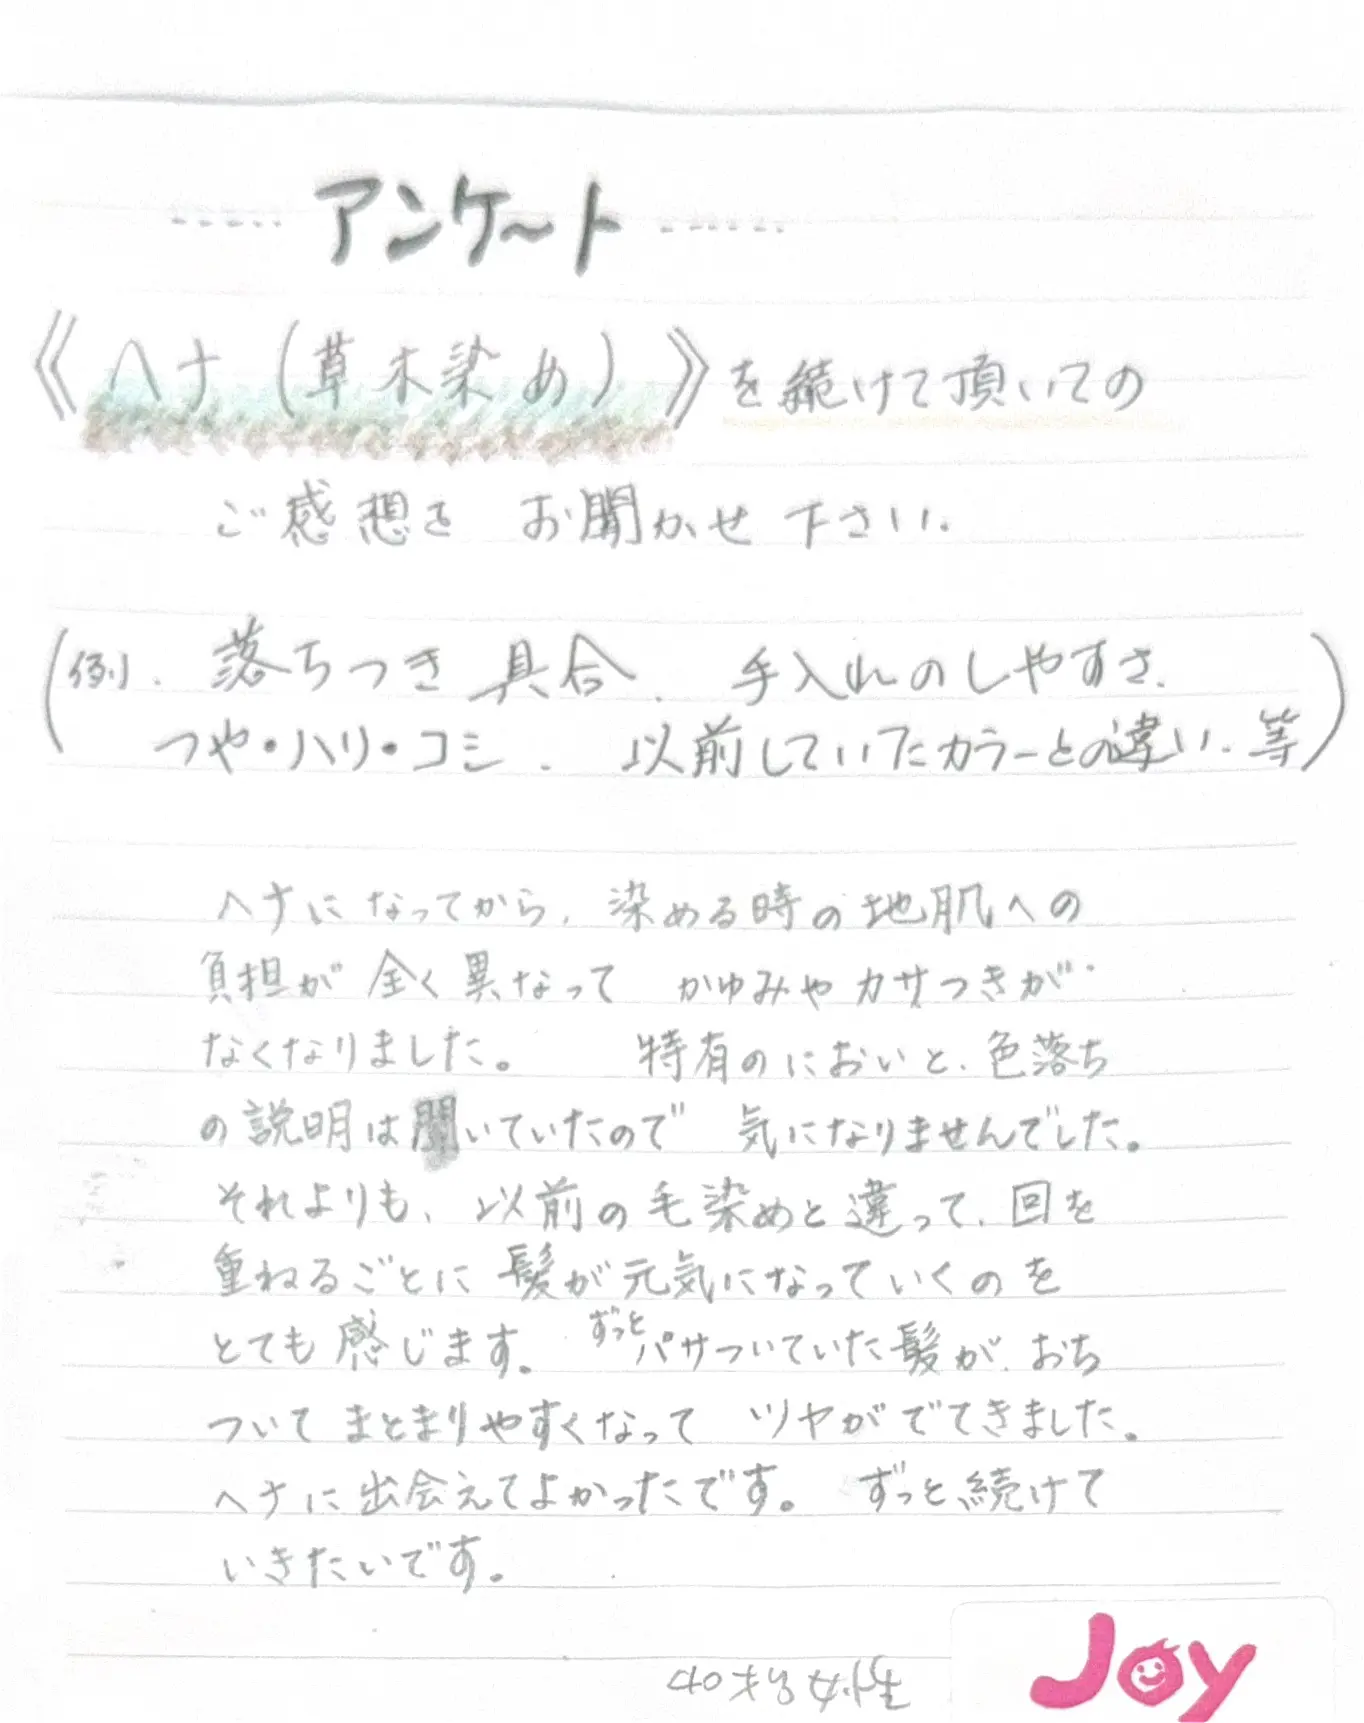 アンケート
《ヘナ(草木染め)》を続けて頂いての
ご感想を お聞かせ下さい.
(例. 落ちつき具合. 手入れのしやすさ.
つや・ハリ・コシ. 以前していたカラーとの違い. 等)
ヘナになってから, 染める時の地肌への
負担が全く異なって かゆみやカサつきが
なくなりました。 特有のにおいと、色落ち
の説明は聞いていたので 気になりませんでした。
それよりも、以前の毛染めと違って、回を
重ねるごとに髪が元気になっていくのを
とても感じます。 ずっとパサついていた髪が、おち
ついてまとまりやすくなって ツヤがでてきました。
ヘナに出会えてよかったです。 ずっと続けて
いきたいです。
40才 女性
Joy